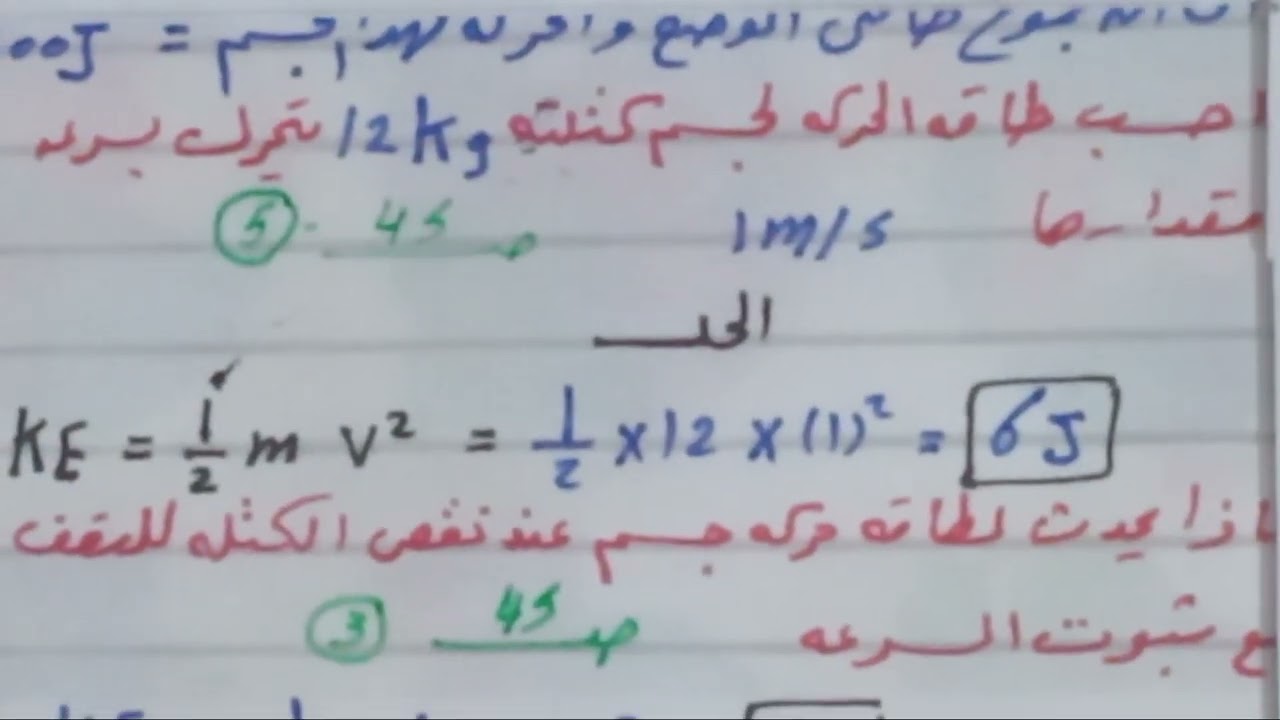 الوضع والحركه لهذا الجسم = 00J
احسب طاقه الحركه لجسم كتلته 12kg تتحرك بسرعه
مقدارها 1m/s ص 45 (5)
الحل
KE = 1/2 m v² = 1/2 x 12 x (1)² = 6J
ماذا يحدث لطاقه حركه جسم عند نقص الكتله للنصف
مع ثبوت السرعه ص 45 (3)